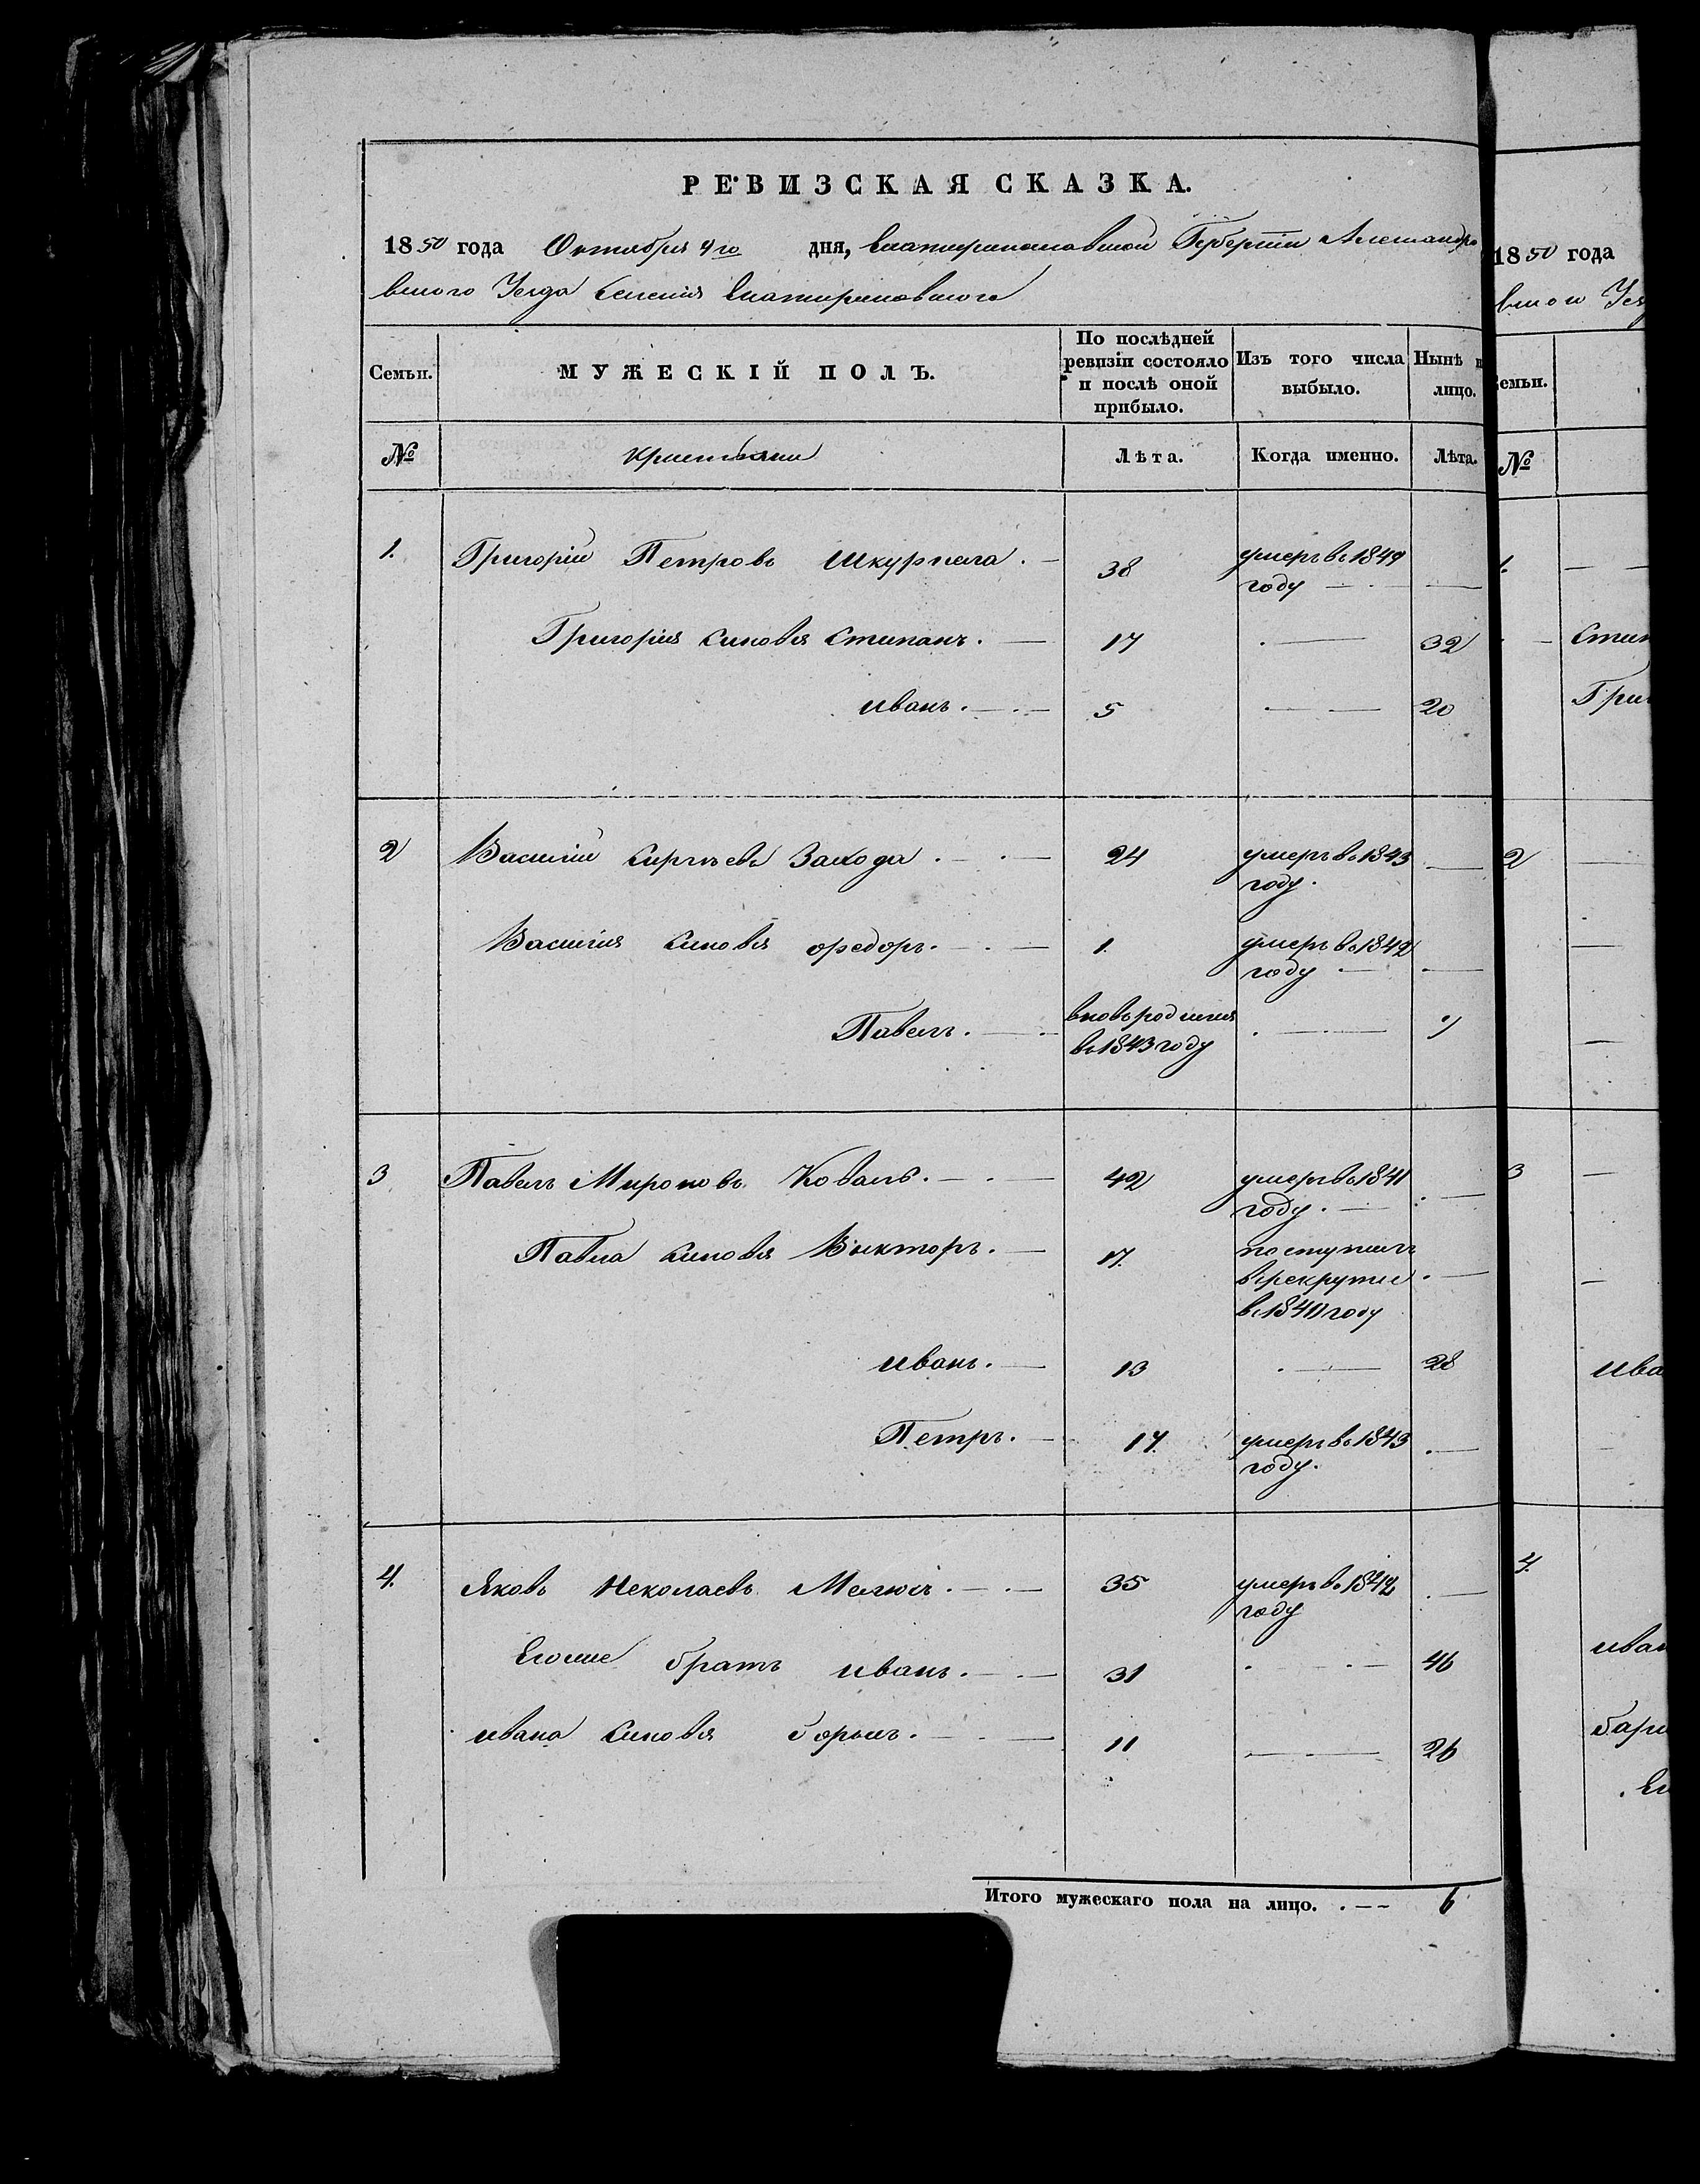 РЕВИЗСКАЯ СКАЗКА.
1850 года Октября 4го дня, Екатеринославской Губерніи Александро
вского Уезда Селения Екатериновского
Семьи. МУЖЕСКІЙ ПОЛЪ. По послѣдней ревизіи состояло и послѣ оной прибыло. Изъ того числа выбыло. Нынѣ лицо.
№ Крестьяни Лѣта. Когда именно. Лѣта.
1. Григорій Петровъ Шкурпела. 38 умеръ въ 1849
году
Григорія синовя Стипанъ. 17 32
иванъ. 5 20
2 Василій Сергѣевъ 24 умеръ въ 1843
году.
Василия синовя Федоръ. 1. умеръ въ 1842
году
Павелъ. вновь родился 7
въ 1843 году
3 Павелъ Мироновъ Коваль. 42 умеръ въ 1841
году.
Павла синовя Викторъ. 17. поступилъ
врекруты
в 1840 году
иванъ. 13 28
Петръ. умеръ въ 1843
году.
4. Яковъ Неколаевъ 35 умеръ въ 1842
году
Егоше братъ иванъ. 31 46
ивана синовя 11 26
Итого мужескаго пола на лицо. 6
1850 года
Семьи.
№
1.
Стип
Григ
2
3
ива
4.
иван